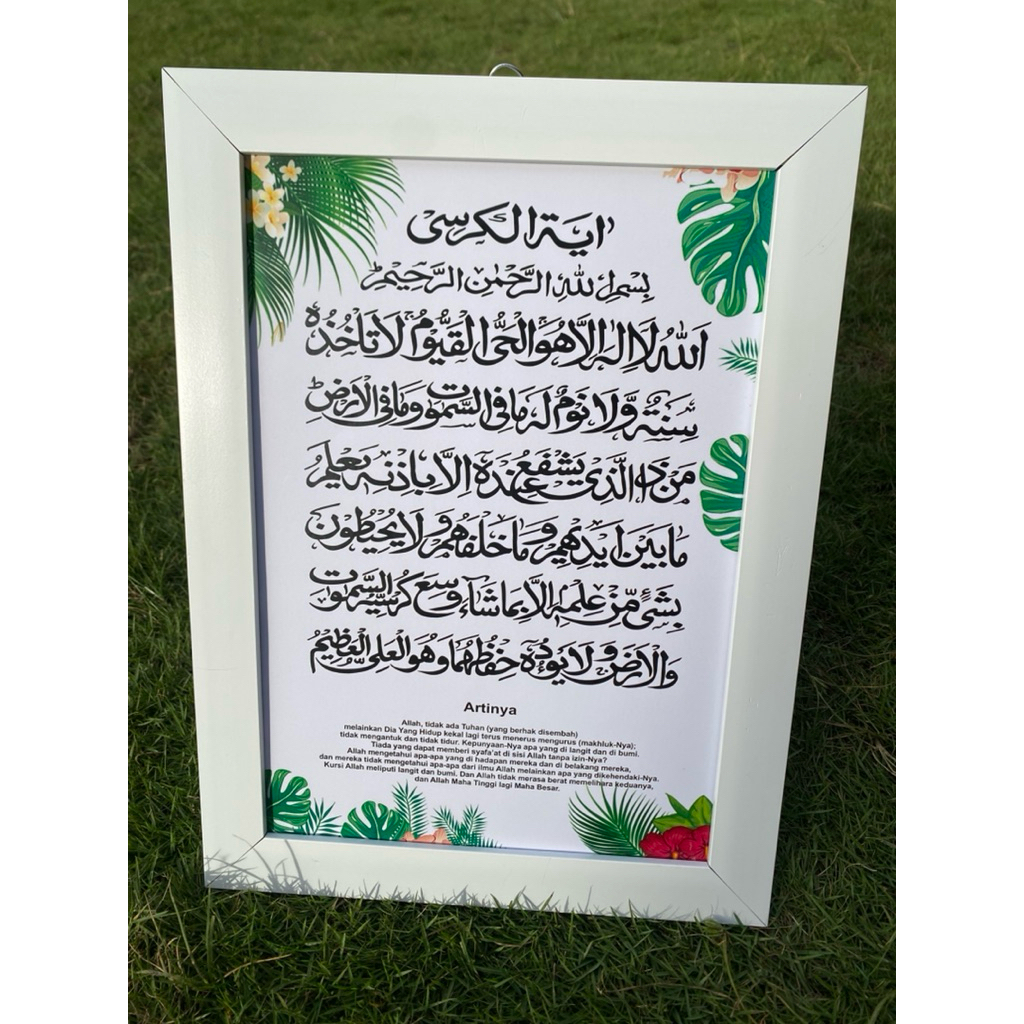 اية الكرسي
بِسْمِ اللهِ الرَّحْمٰنِ الرَّحِيْمِ
اَللهُ لَا اِلٰهَ اِلَّا هُوَ الْحَيُّ الْقَيُّوْمُ لَا تَأْخُذُهٗ
سِنَةٌ وَّلَا نَوْمٌ لَهٗ مَا فِى السَّمٰوٰتِ وَمَا فِى الْاَرْضِ
مَنْ ذَا الَّذِيْ يَشْفَعُ عِنْدَهٗ اِلَّا بِاِذْنِهٖ يَعْلَمُ
مَا بَيْنَ اَيْدِيْهِمْ وَمَا خَلْفَهُمْ وَلَا يُحِيْطُوْنَ
بِشَيْءٍ مِّنْ عِلْمِهٖ اِلَّا بِمَا شَاءَ وَسِعَ كُرْسِيُّهُ السَّمٰوٰتِ
وَالْاَرْضَ وَلَا يَـُٔوْدُهٗ حِفْظُهُمَا وَهُوَ الْعَلِيُّ الْعَظِيْمُ
Artinya
Allah, tidak ada Tuhan (yang berhak disembah)
melainkan Dia Yang Hidup kekal lagi terus menerus mengurus (makhluk-Nya);
tidak mengantuk dan tidak tidur. Kepunyaan-Nya apa yang di langit dan di bumi.
Tiada yang dapat memberi syafa'at di sisi Allah tanpa izin-Nya?
Allah mengetahui apa-apa yang di hadapan mereka dan di belakang mereka,
dan mereka tidak mengetahui apa-apa dari ilmu Allah melainkan apa yang dikehendaki-Nya.
Kursi Allah meliputi langit dan bumi. Dan Allah tidak merasa berat memelihara keduanya,
dan Allah Maha Tinggi lagi Maha Besar.